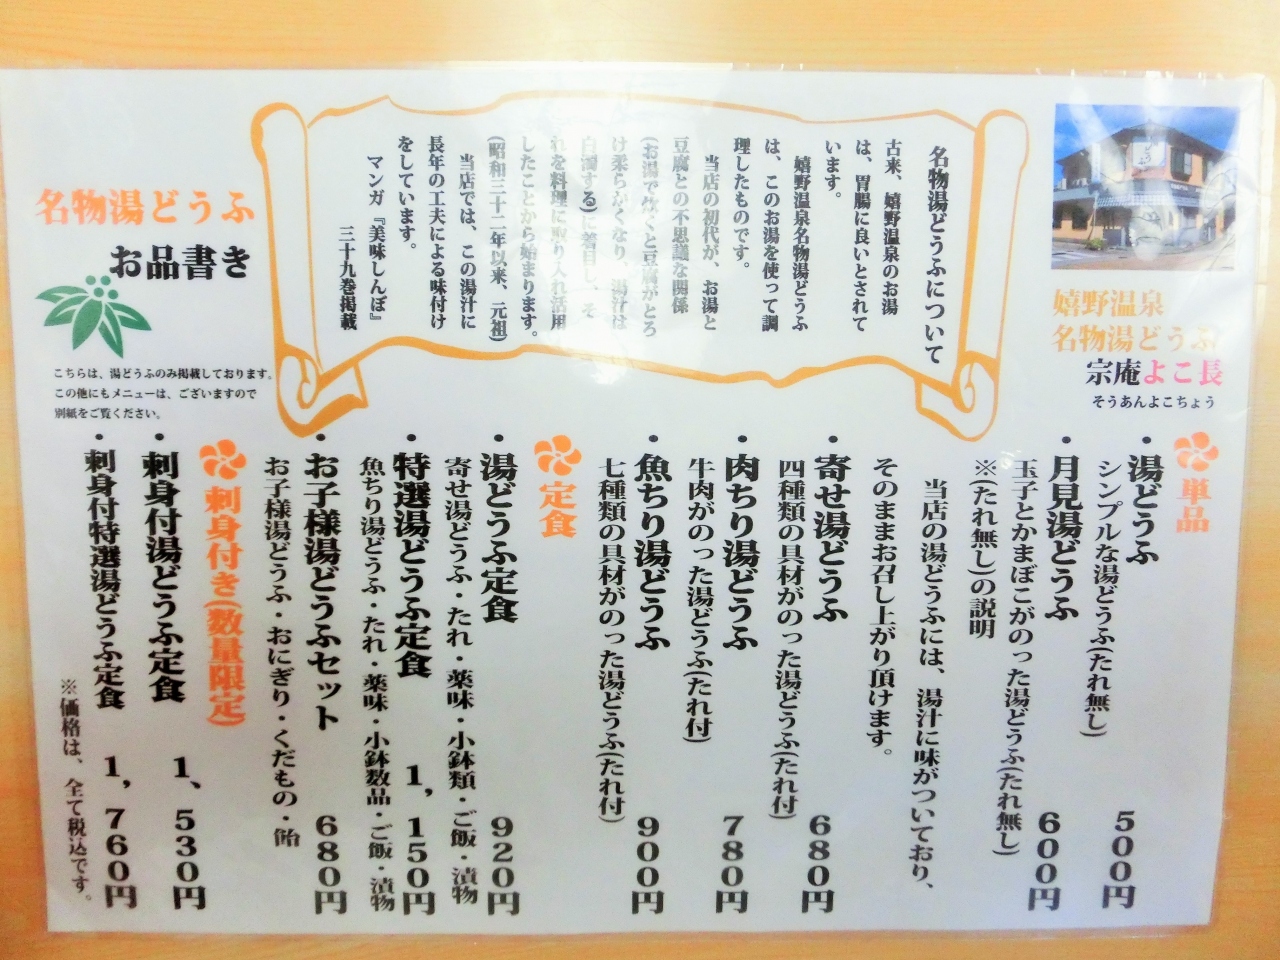 嬉野温泉
名物湯どうふ
宗庵よこ長
そうあんよこちょう
名物湯どうふについて
古来、嬉野温泉のお湯
は、胃腸に良いとされて
います。
嬉野温泉名物湯どうふ
は、このお湯を使って調
理したものです。
当店の初代が、お湯と
豆腐との不思議な関係
(お湯で炊くと豆腐がとろ
け柔らかくなり、湯汁は
白濁する)に着目し、そ
れを料理に取り入れ活用
したことから始まります。
(昭和三十二年以来、元祖)
当店では、この湯汁に
長年の工夫による味付け
をしています。
マンガ『美味しんぼ』
三十九巻掲載
名物湯どうふ
お品書き
こちらは、湯どうふのみ掲載しております。
この他にもメニューは、ございますので
別紙をご覧ください。
単品
・湯どうふ 500円
シンプルな湯どうふ(たれ無し)
・月見湯どうふ 600円
玉子とかまぼこがのった湯どうふ(たれ無し)
※(たれ無し)の説明
当店の湯どうふには、湯汁に味がついており、
そのままお召し上がり頂けます。
・寄せ湯どうふ 680円
四種類の具材がのった湯どうふ(たれ付)
・肉ちり湯どうふ 780円
牛肉がのった湯どうふ(たれ付)
・魚ちり湯どうふ 900円
七種類の具材がのった湯どうふ(たれ付)
定食
・湯どうふ定食 920円
寄せ湯どうふ・たれ・薬味・小鉢類・ご飯・漬物
・特選湯どうふ定食 1,150円
魚ちり湯どうふ・たれ・薬味・小鉢数品・ご飯・漬物
・お子様湯どうふセット 680円
お子様湯どうふ・おにぎり・くだもの・飴
刺身付き(数量限定)
・刺身付湯どうふ定食 1、530円
・刺身付特選湯どうふ定食 1,760円
※価格は、全て税込です。